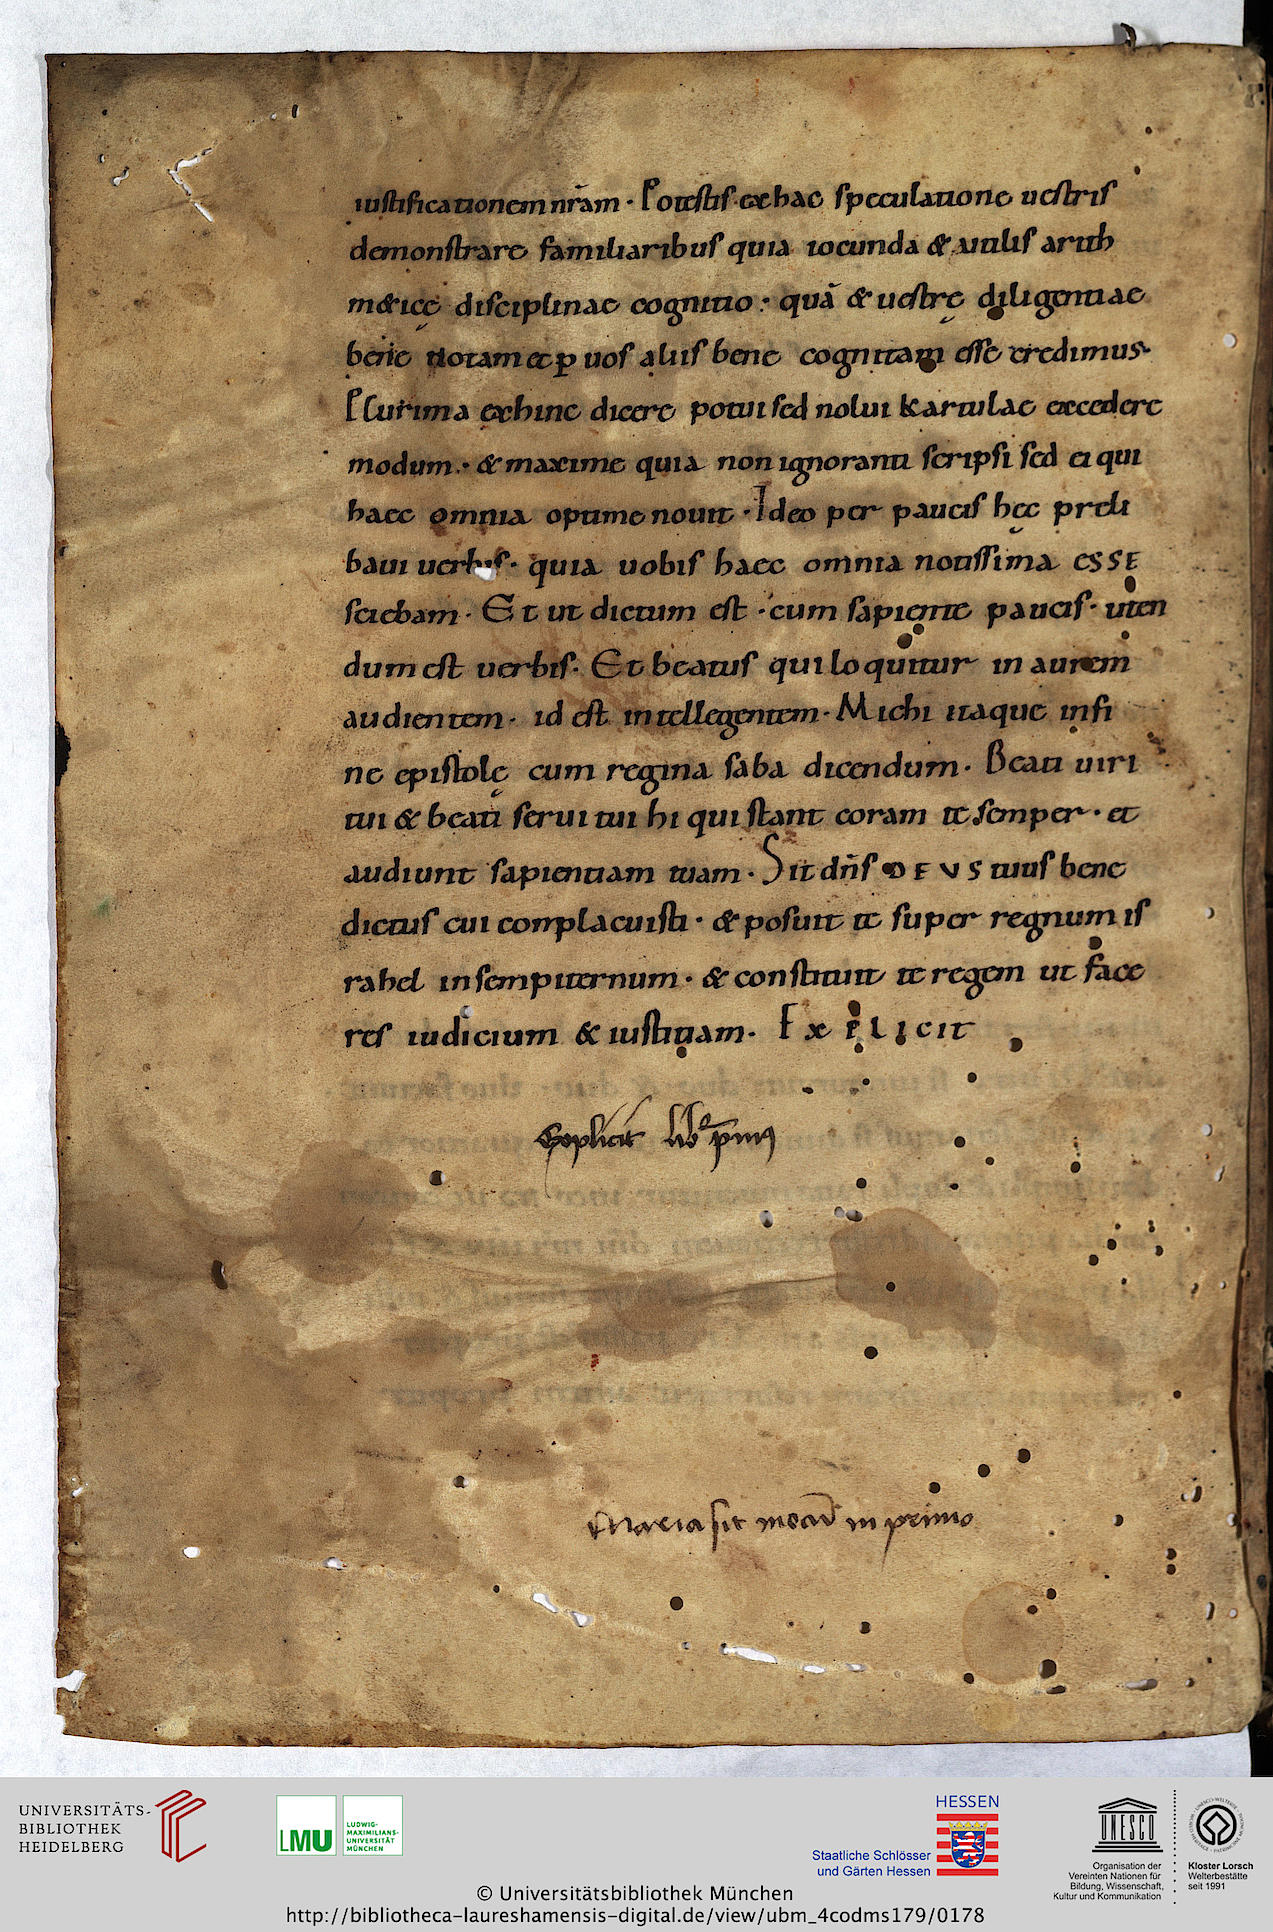 iustificationem nr̄am · Potestis ex hac speculatione uestris
demonstrare familiaribus quia iocunda & utilis arith
m&icę disciplinae cognitio : quā & uestrę diligentiae
bene notam et ꝑ uos aliis bene cognitam esse credimus·
Plurima exhinc dicere potui sed nolui kartulae excedere
modum · & maxime quia non ignoranti scripsi sed ei qui
haec omnia optime nouit · Ideo per paucis hęc preli
baui uerbis · quia uobis haec omnia notissima ESSE
sciebam · Et ut dictum est · cum sapiente paucis · uten
dum est uerbis · Et beatus qui loquitur in aurem
audientem · id est intellegentem · Michi itaque in fi
ne epistolę cum regina saba dicendum · Beati uiri
tui & beati serui tui hi qui stant coram te semper · et
audiunt sapientiam tuam · Sit dn̄s DEUS tuus bene
dictus cui complacuisti · & posuit te super regnum is
rahel in sempiternum · & constituit te regem ut face
res iudicium & iustitiam · EXPLICIT
Explicit lib² p̄mꝰ
Maria sit in primo
UNIVERSITÄTS-
BIBLIOTHEK
HEIDELBERG
LMU
LUDWIG-
MAXIMILIANS-
UNIVERSITÄT
MÜNCHEN
HESSEN
Staatliche Schlösser
und Gärten Hessen
UNESCO
Organisation der
Vereinten Nationen für
Bildung, Wissenschaft,
Kultur und Kommunikation
Kloster Lorsch
Welterbestätte
seit 1991
© Universitätsbibliothek München
http://bibliotheca-laureshamensis-digital.de/view/ubm_4codms179/0178